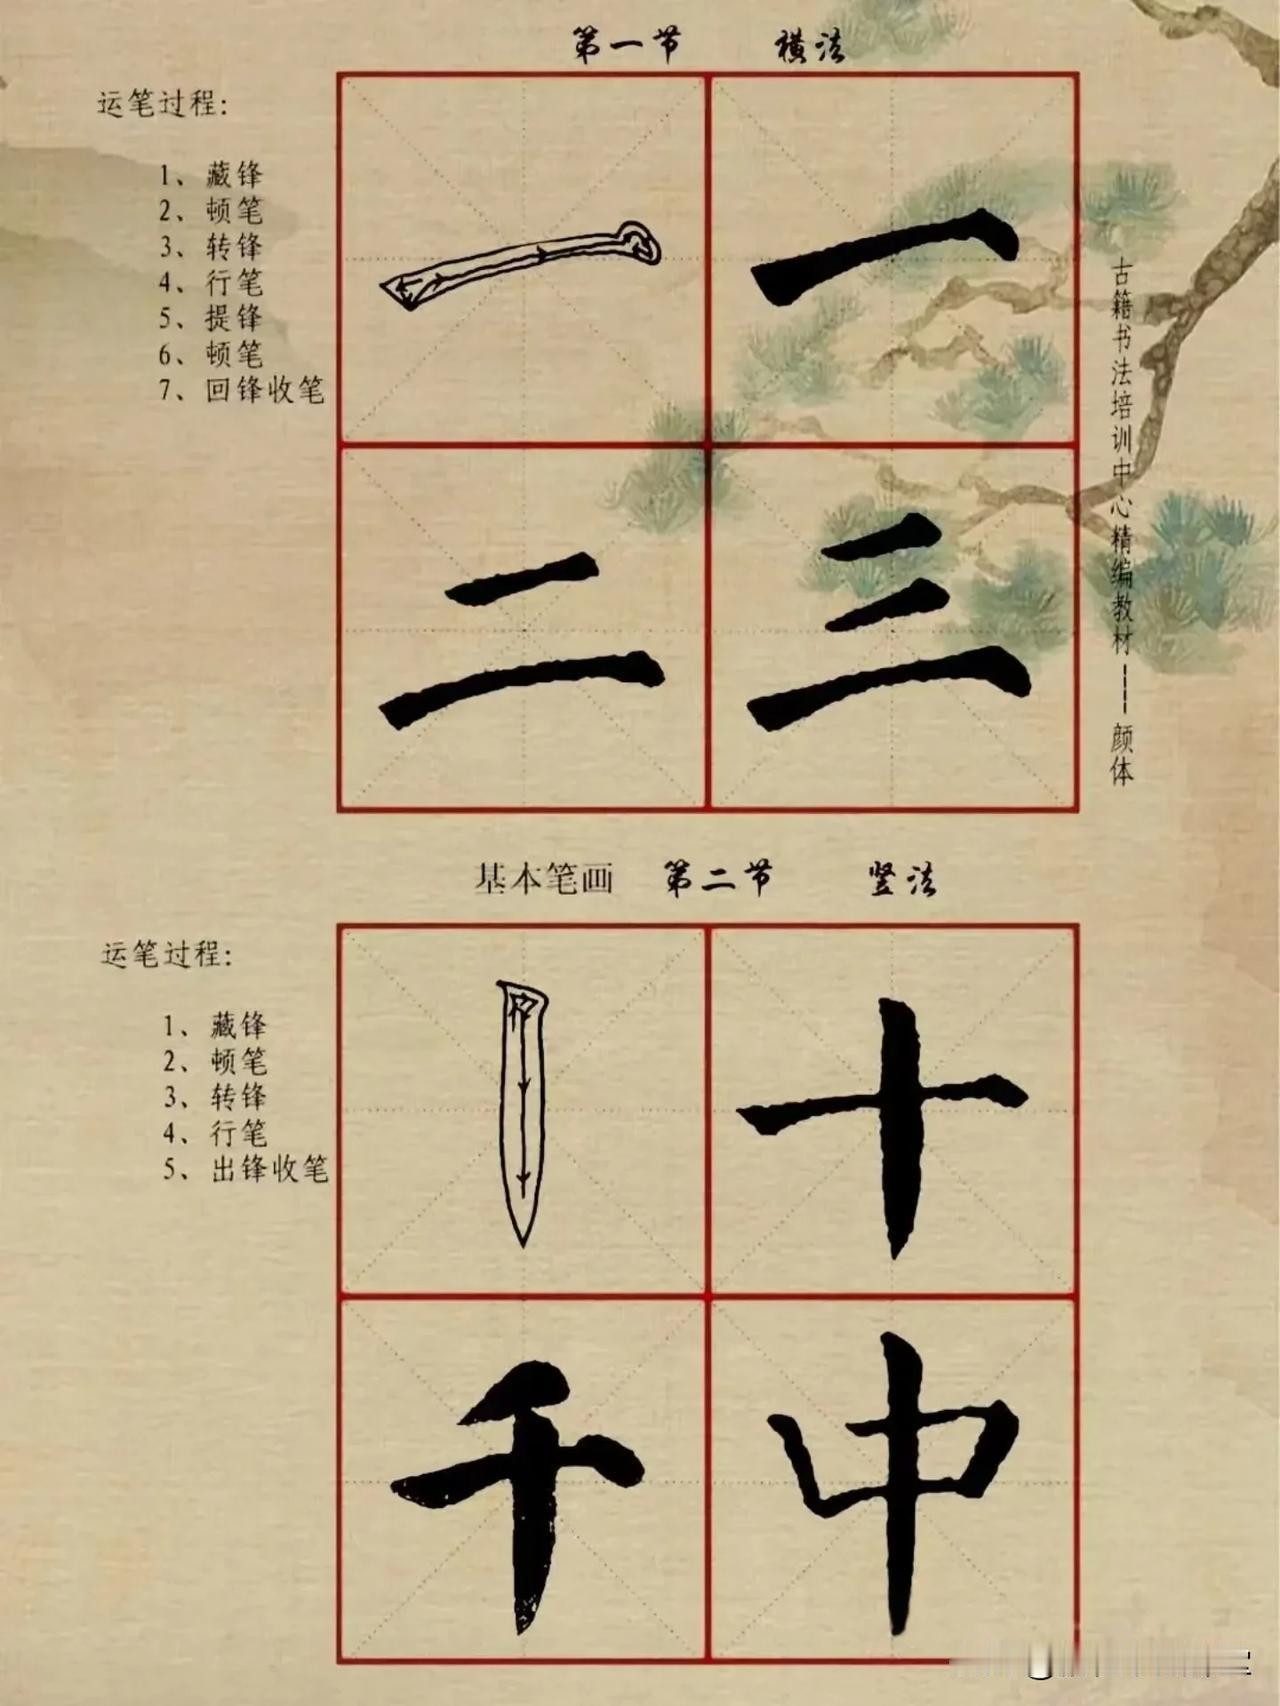 第一节 横法
运笔过程:
1、藏锋
2、顿笔
3、转锋
4、行笔
5、提锋
6、顿笔
7、回锋收笔
一
二 三
古籍书法培训中心精编教材——颜体
基本笔画 第二节 竖法
运笔过程:
1、藏锋
2、顿笔
3、转锋
4、行笔
5、出锋收笔
十
千 中